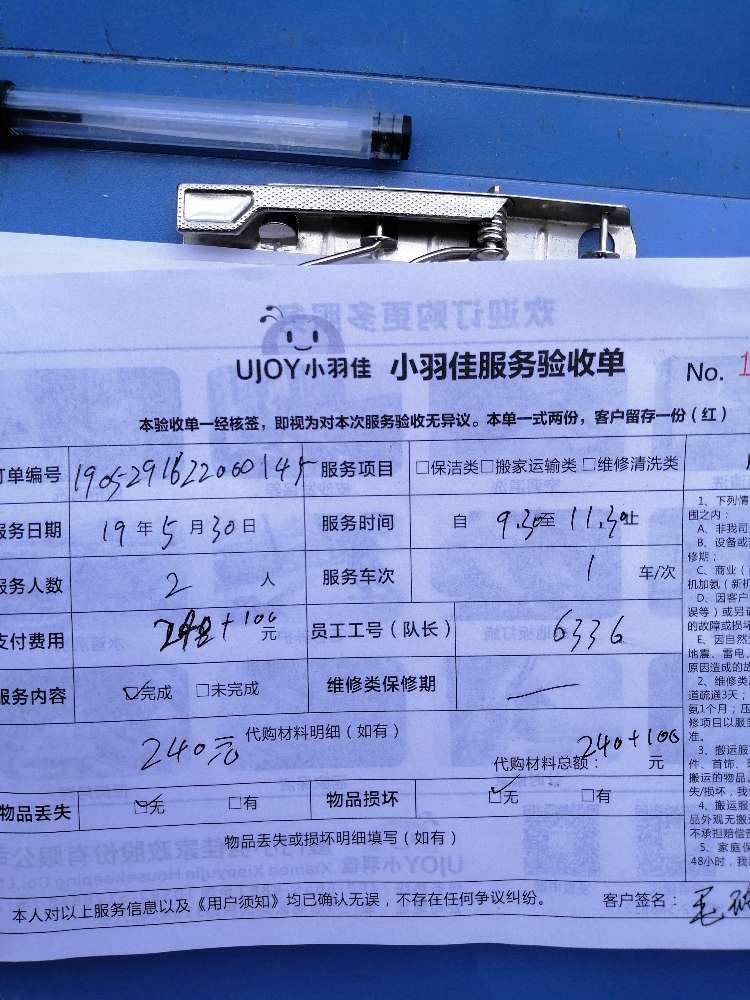 UJOY小羽佳 小羽佳服务验收单 No. 1
本验收单一经核签，即视为对本次服务验收无异议。本单一式两份，客户留存一份（红）
订单编号 190529162200014 服务项目 □保洁类□搬家运输类 □维修清洗类
服务日期 19 年 5 月 30 日 服务时间 自 9.30 至 11.30 止
服务人数 2 人 服务车次 1 车/次
支付费用 +100 元 员工工号（队长） 6336
服务内容 ☑完成 □未完成 维修类保修期 —
240元 代购材料明细（如有）
代购材料总额： 240+100 元
物品丢失 ☑无 □有 物品损坏 ☑无 □有
物品丢失或损坏明细填写（如有）
本人对以上服务信息以及《用户须知》均已确认无误，不存在任何争议纠纷。 客户签名： 毛
1、下列情
围之内：
A、非我司
B、设备或
修期；
C、商业（
机加氨（新机
D、因客户
误等）或另
的故障或损坏
E、因自然
地震、雷电、
原因造成的故
2、维修类
道疏通3天；
氨1个月；压
修项目以服
准。
3、搬运服
件、首饰、
搬运的物品，
失/损坏，我
4、搬运服
品外观无搬
不承担赔偿
5、家庭保
48小时，我